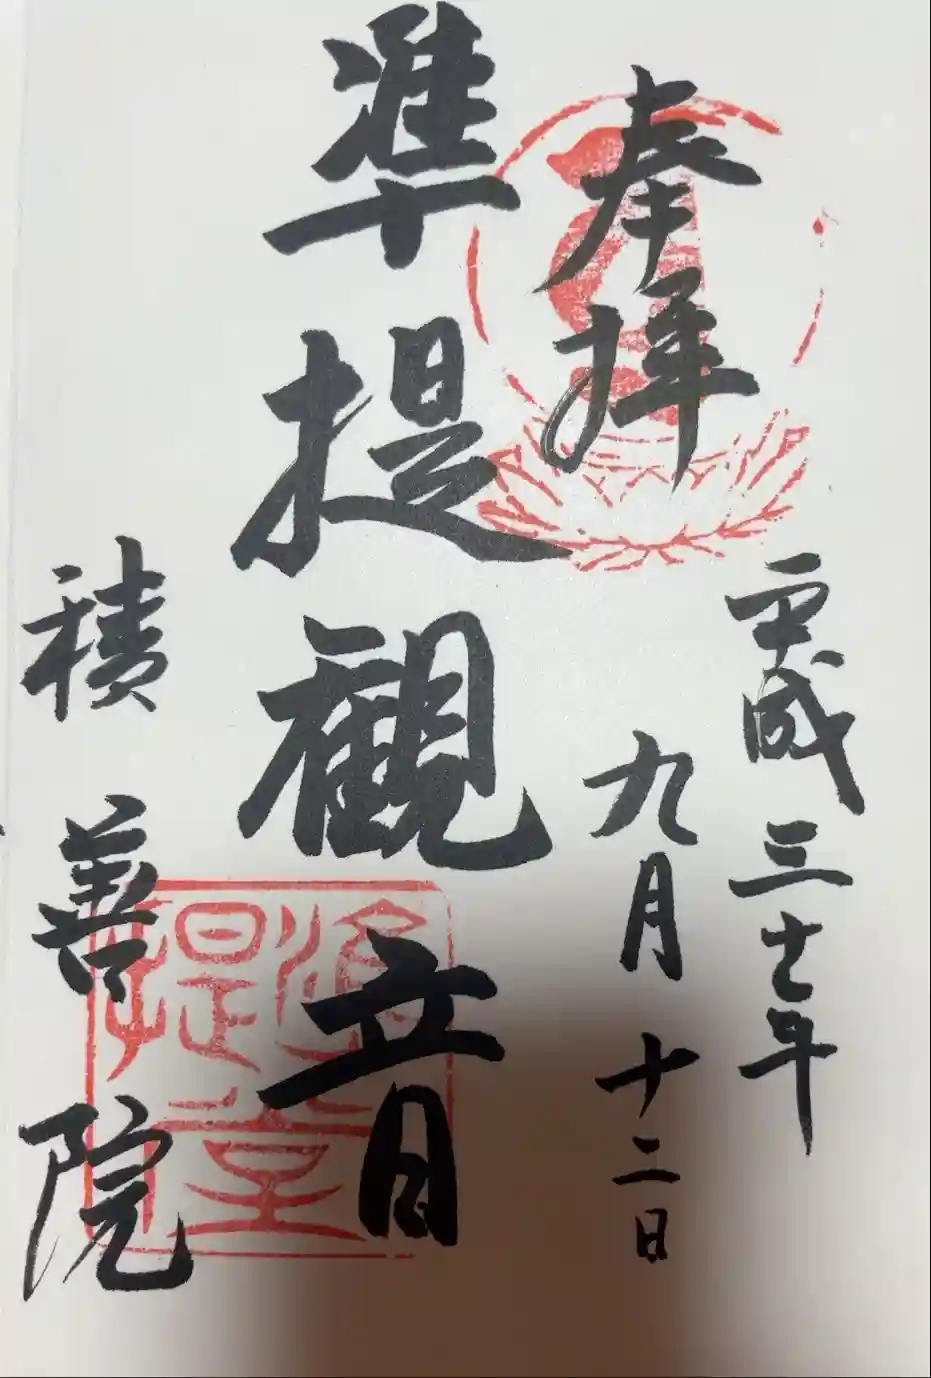 奉拝
平成三十年
九月十二日
準提觀音
積善院
准提堂